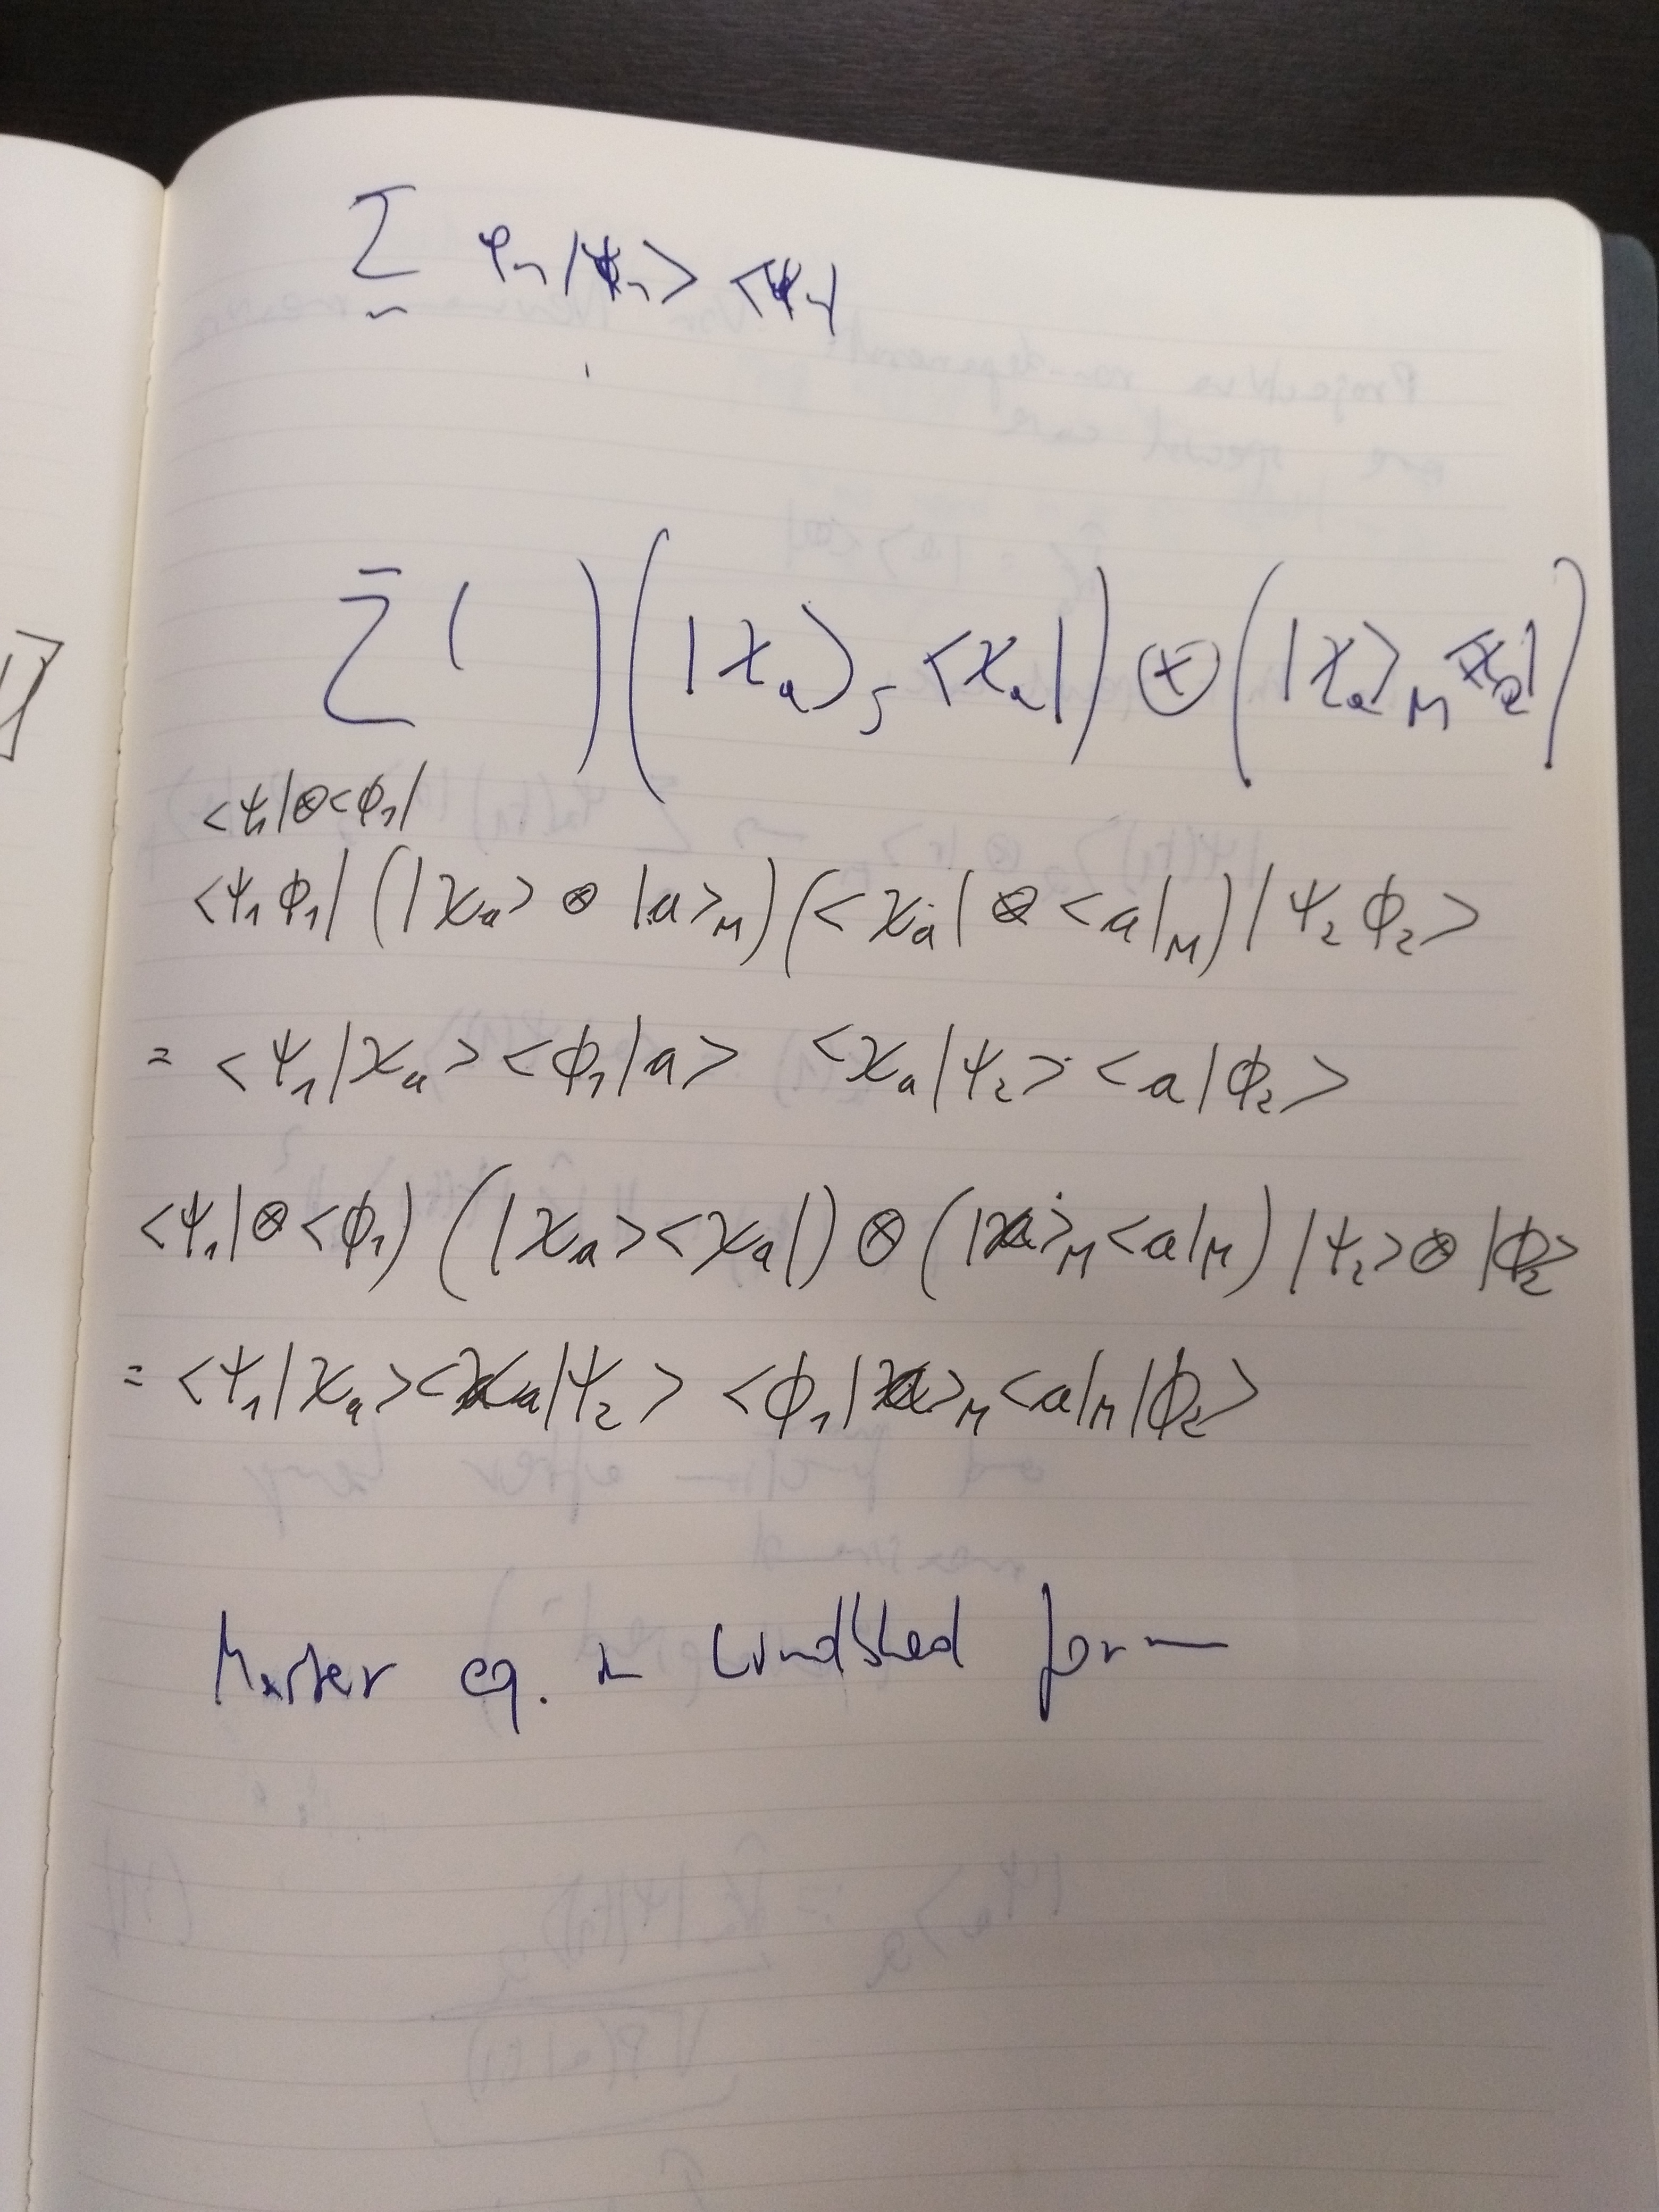 Σ φₙ|ψₙ> <ψₙ|
n
Σ ( ) (|χₐ>ₛ <χₐ|) ⊗ (|χₐ>_M <χₐ|)
<ψ₁|⊗<ϕ₁|
<ψ₁ ϕ₁| (|χₐ> ⊗ |a>_M) (<χₐ| ⊗ <a|_M) |ψ₂ ϕ₂>
= <ψ₁|χₐ> <ϕ₁|a> <χₐ|ψ₂> <a|ϕ₂>
<ψ₁|⊗<ϕ₁) (|χₐ><χₐ|) ⊗ (|a>_M <a|_M) |ψ₂> ⊗ |ϕ₂>
= <ψ₁|χₐ><χₐ|ψ₂> <ϕ₁|a>_M <a|_M|ϕ₂>
Master eq. in Lindblad form